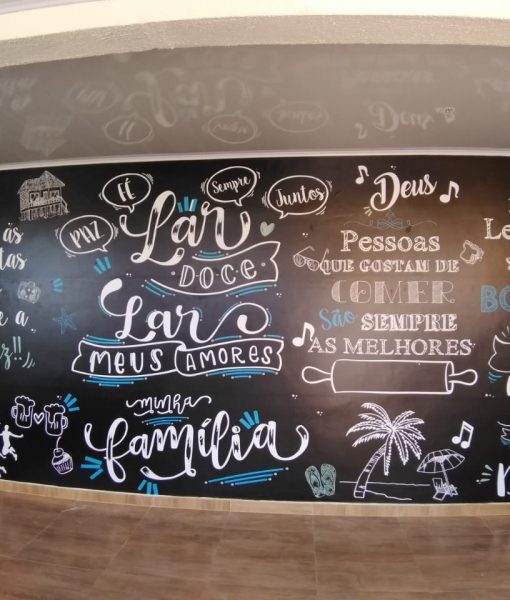 FÉ
PAZ
Sempre
Juntos
Lar
DOCE
Lar
MEUS AMORES
minha
família
Deus
Pessoas
QUE GOSTAM DE
COMER
São SEMPRE
AS MELHORES